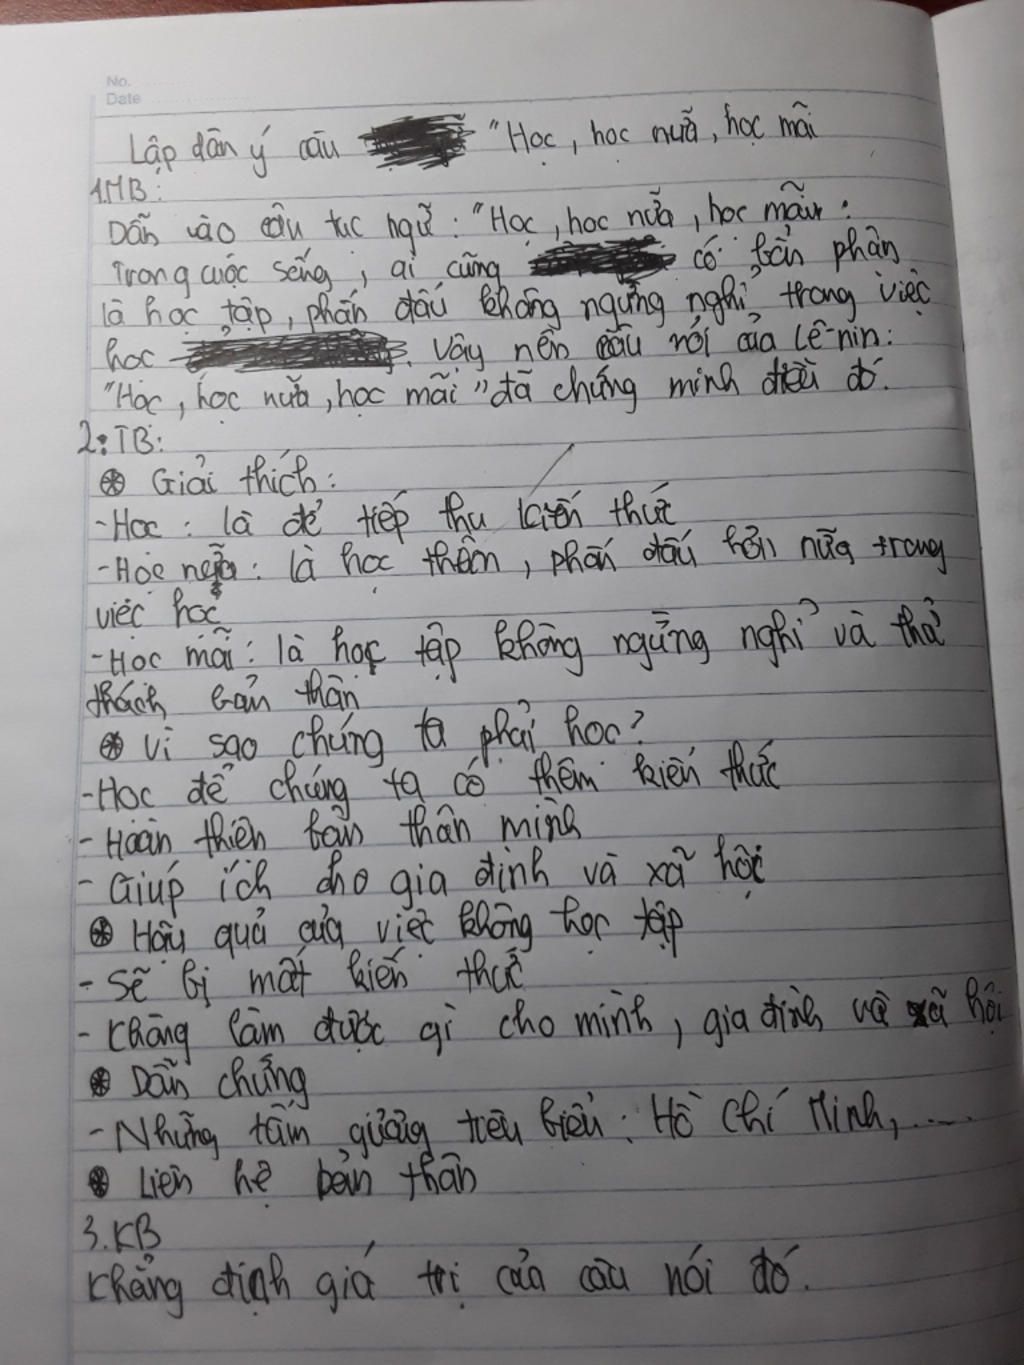 No.
Date
Lập dàn ý câu "Học, học nữa, học mãi
1.MB:
Dẫn vào câu tục ngữ: "Học, học nữa, học mãi":
Trong cuộc sống, ai cũng có bản phận
là học tập, phấn đấu không ngừng nghỉ trong việc
học. Vậy nên câu nói của Lê-nin:
"Học, học nữa, học mãi" đã chứng minh điều đó.
2:TB:
⊛ Giải thích:
-Học: là để tiếp thu kiến thức
-Học nữa: là học thêm, phấn đấu hơn nữa trong
việc học
-Học mãi: là học tập không ngừng nghỉ và thử
thách bản thân
⊛ Vì sao chúng ta phải học?
-Học để chúng ta có thêm kiến thức
- Hoàn thiện bản thân mình
- Giúp ích cho gia đình và xã hội
⊛ Hậu quả của việc không học tập
- Sẽ bị mất kiến thức
- Không làm được gì cho mình, gia đình và xã hội
⊛ Dẫn chứng
- Những tấm gương tiêu biểu: Hồ Chí Minh,....
⊛ Liên hệ bản thân
3.KB
Khẳng định giá trị của câu nói đó.